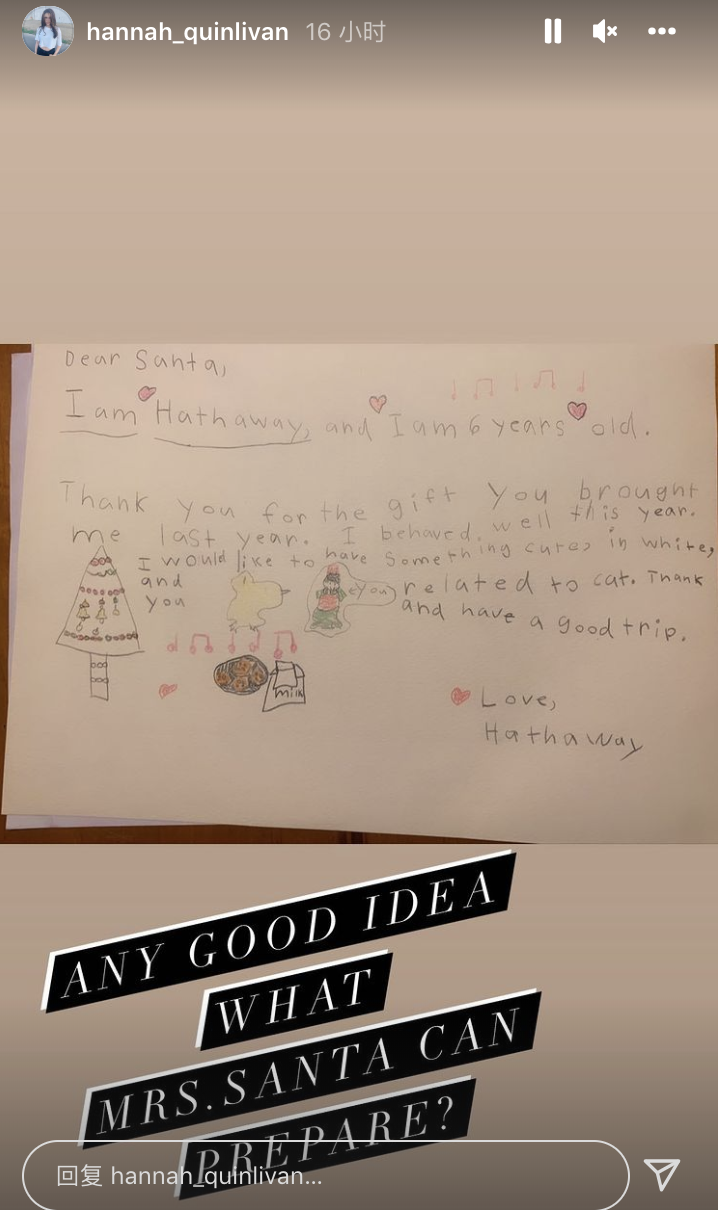 hannah_quinlivan 16 小时
Dear Santa,
I am Hathaway, and I am 6 years old.
Thank you for the gift you brought
me last year. I behaved. well this year.
I would like to have something cute, in white,
and you related to cat. Thank
you and have a good trip.
milk
Love,
Hathaway
ANY GOOD IDEA
WHAT
MRS.SANTA CAN
PREPARE?
回复 hannah_quinlivan...